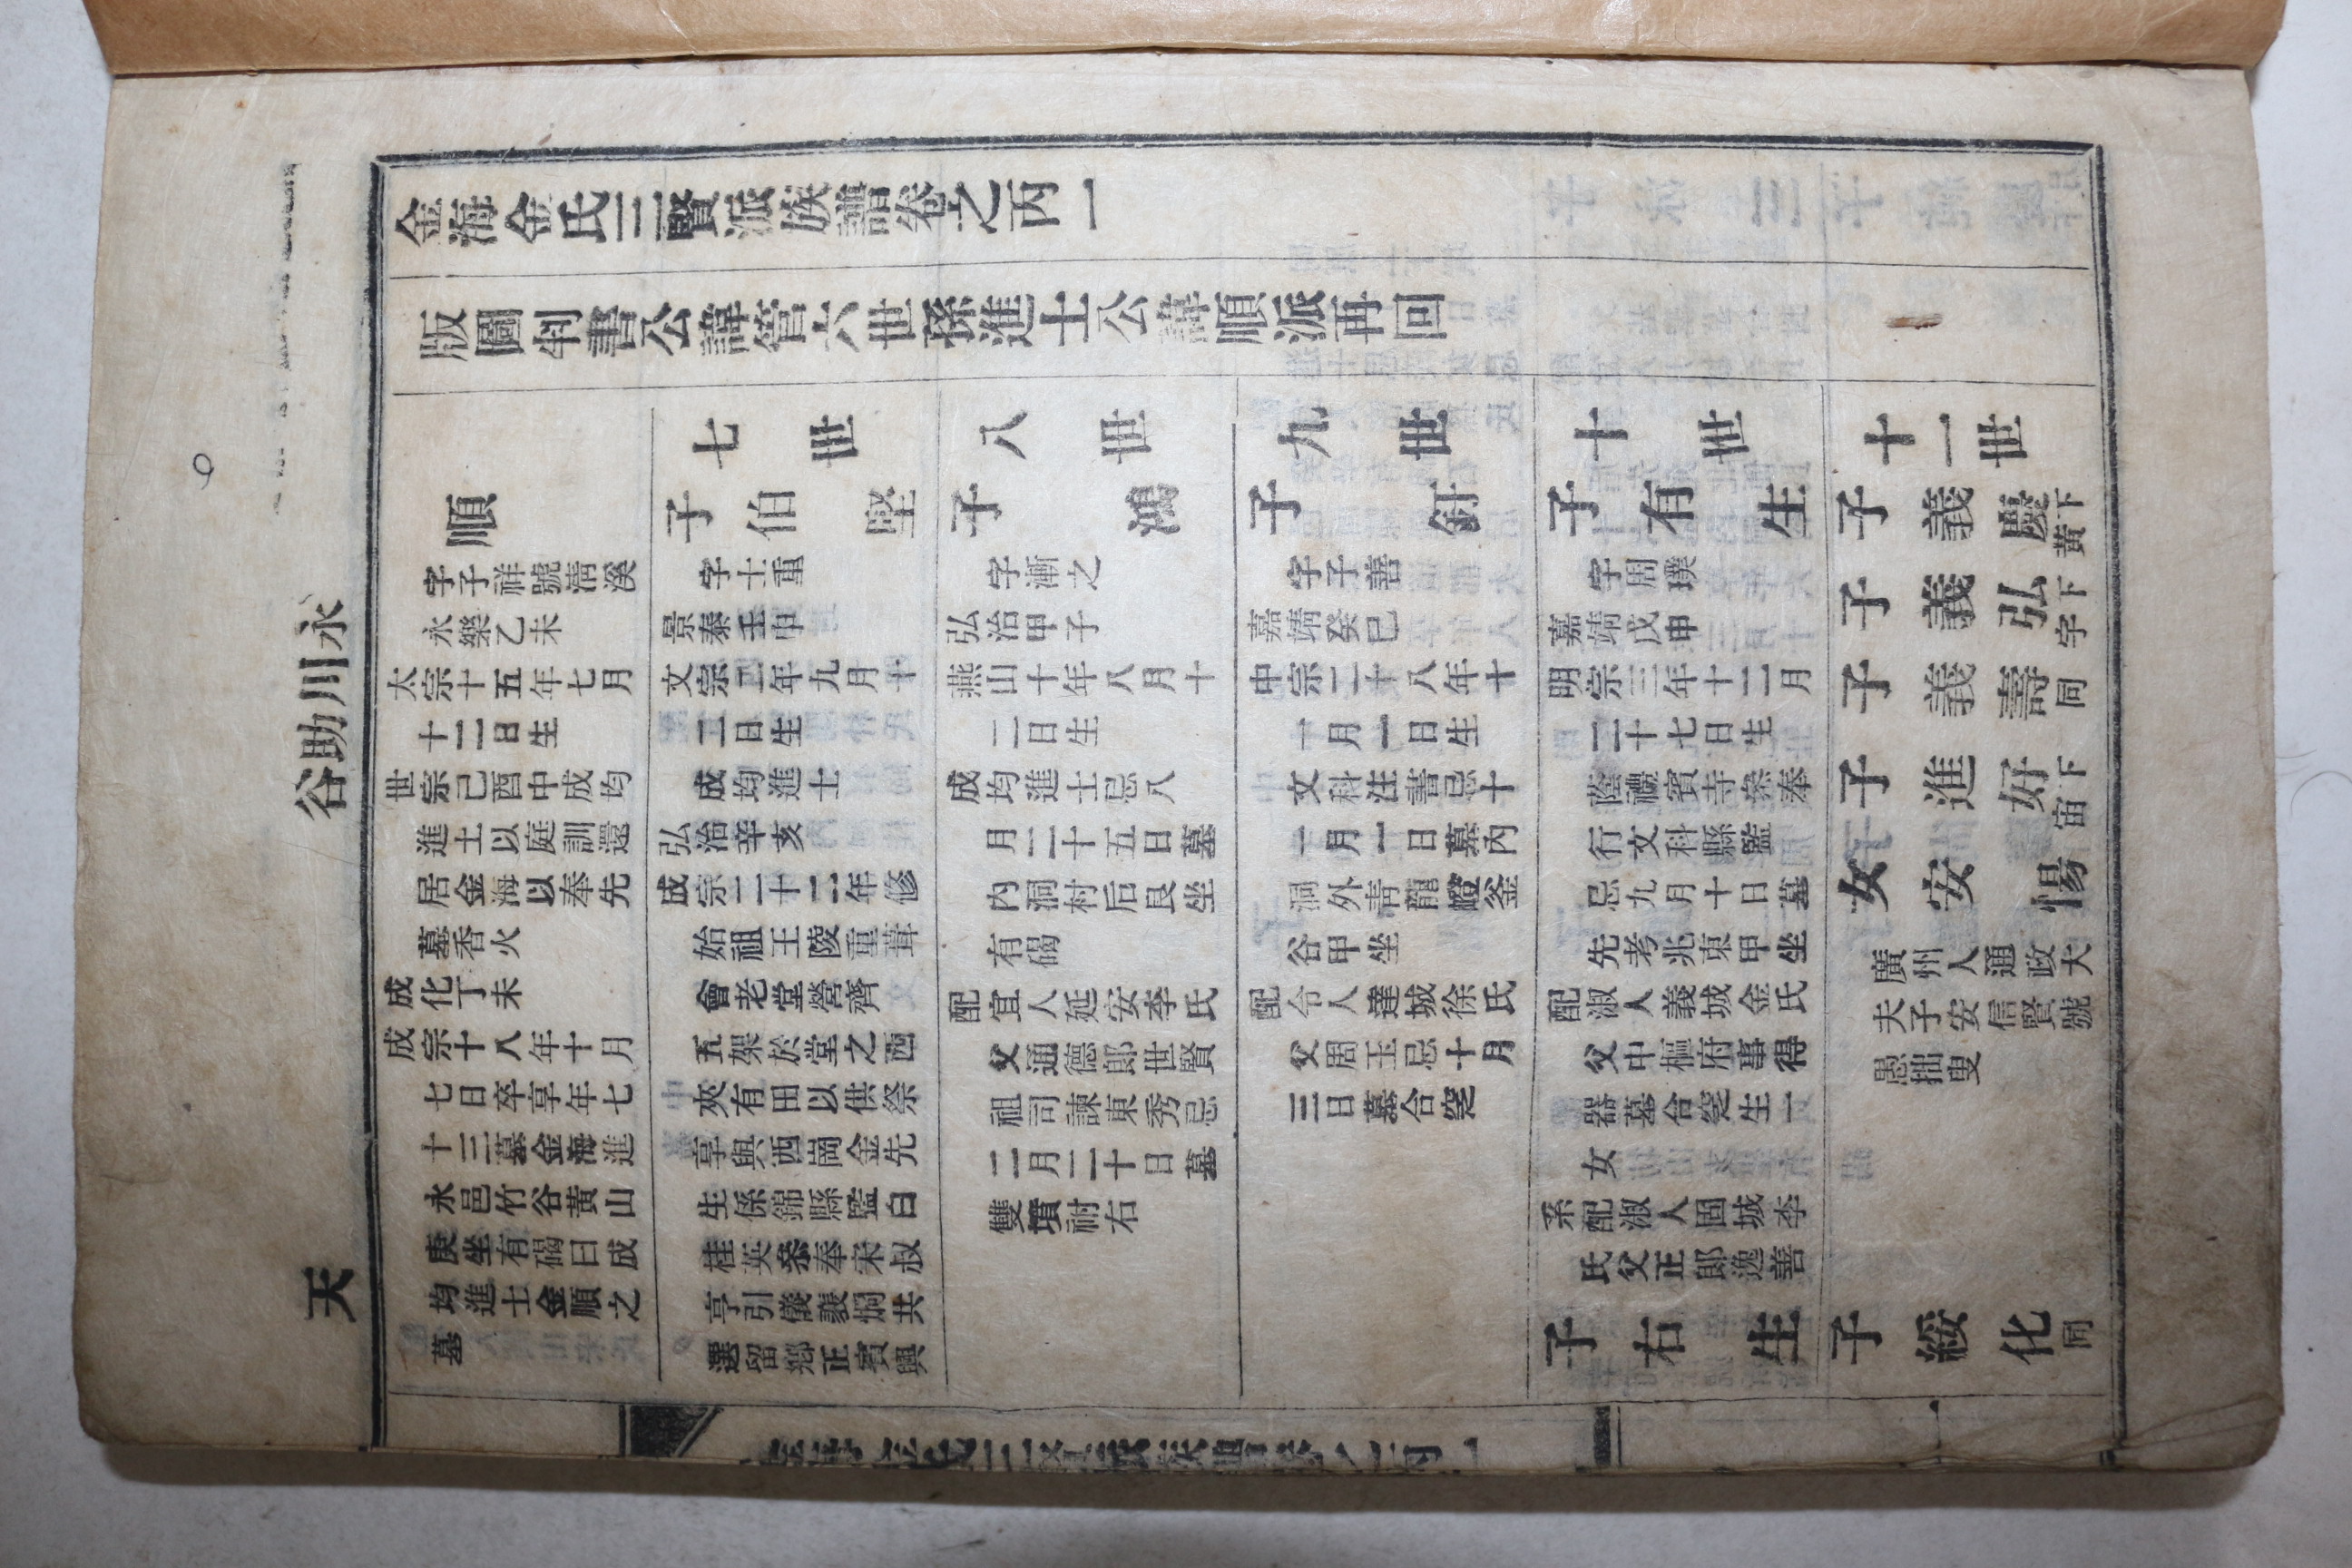 金海金氏三賢派族譜卷之丙一
版圖判書公諱管六世孫進士公諱順派再回
順
字子祥號淸溪
永樂乙未
太宗十五年七月
十二日生
世宗己酉中成均
進士以庭訓還
居金海以奉先
墓香火
成化丁未
成宗十八年十月
七日卒享年七
十三墓金海進
永邑竹谷黃山
庚坐有碣曰成
均進士金順之
墓
七世
子伯堅
字士重
景泰壬申
文宗二年九月十
二日生
成均進士
弘治辛亥
成宗二十二年修
始祖王陵重葺
會老堂營齊
五架於堂之西
夾有田以供祭
享與西岡金先
生係錦縣監白
桂英叅奉宋叔
亨引儀裵烱共
選留鄕正賓興
八世
子鴻
字漸之
弘治甲子
燕山十年八月十
二日生
成均進士忌八
月二十五日墓
內洞村后艮坐
有碣
配宜人延安李氏
父通德郞世賢
祖司諫東秀忌
二月二十日墓
雙墳祔右
九世
子釬
字子善
嘉靖癸巳
中宗二十八年十
一月一日生
文科注書忌十
一月一日墓內
洞外靑龍嶝釜
谷甲坐
配令人達城徐氏
父周玉忌十月
三日墓合窆
十世
子有生
字周璞
嘉靖戊申
明宗三年十二月
二十七日生
蔭禮賓寺叅奉
行文科縣監
忌九月十日墓
先考兆東甲坐
配淑人義城金氏
父中樞府事得
器墓合窆生一
女
系配淑人固城李
氏父正郞逸善
子右生
十一世
子義慶 下黃
子義弘 下字
子義壽 同
子進好 下宙
女安愓
廣州人通政大
夫子安信賢號
愚拙叟
子綏化 同
永川助谷
天